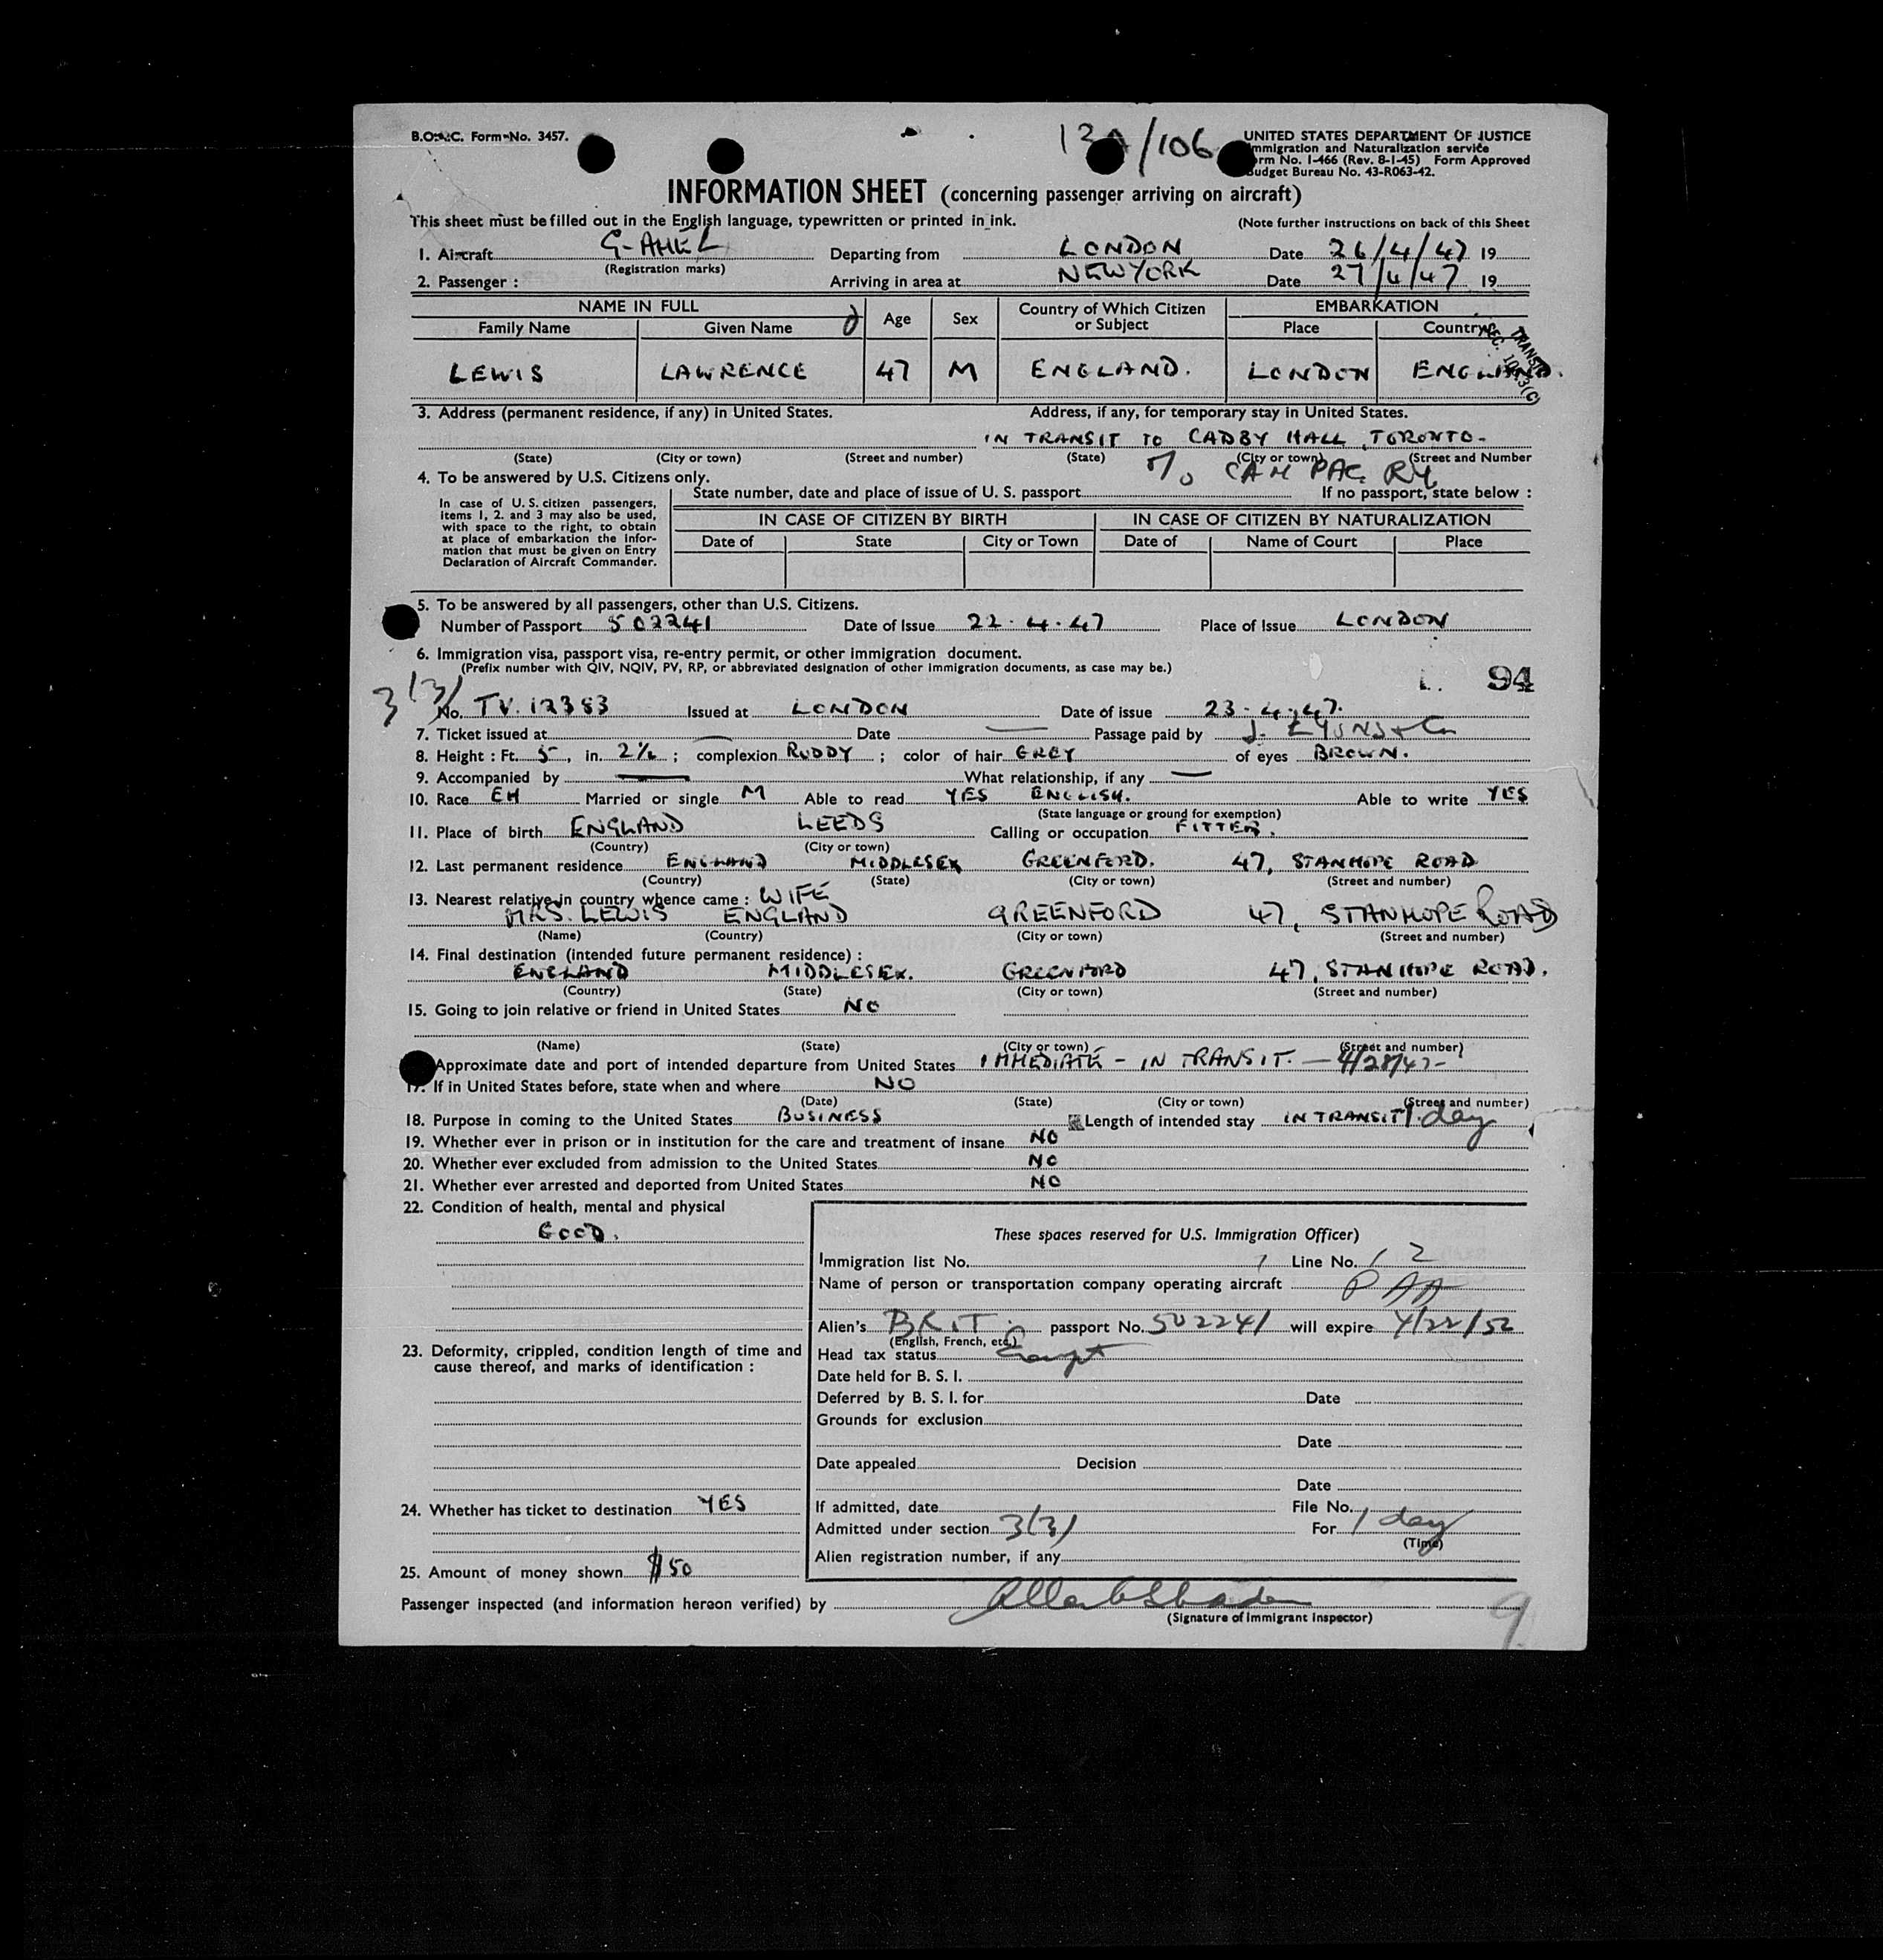 B.O.A.C. Form No. 3457.
12 /106
UNITED STATES DEPARTMENT OF JUSTICE
Immigration and Naturalization service
Form No. I-466 (Rev. 8-1-45) Form Approved
Budget Bureau No. 43-R063-42.
INFORMATION SHEET (concerning passenger arriving on aircraft)
This sheet must be filled out in the English language, typewritten or printed in ink. (Note further instructions on back of this Sheet
1. Aircraft G-AHEL Departing from LONDON Date 26/4/47 19
(Registration marks)
2. Passenger : Arriving in area at NEW YORK Date 27/4/47 19
NAME IN FULL Age Sex Country of Which Citizen or Subject EMBARKATION
Family Name Given Name Place Country
TRANSIT
SEC. 10 .3(C)
LEWIS LAWRENCE 47 M ENGLAND. LONDON ENGLAND.
3. Address (permanent residence, if any) in United States. Address, if any, for temporary stay in United States.
IN TRANSIT TO CADBY HALL, TORONTO-
(State) (City or town) (Street and number) (State) (City or town) (Street and Number
% CAN PAC Ry
4. To be answered by U.S. Citizens only.
State number, date and place of issue of U. S. passport If no passport, state below :
In case of U. S. citizen passengers,
items 1, 2. and 3 may also be used,
with space to the right, to obtain
at place of embarkation the infor-
mation that must be given on Entry
Declaration of Aircraft Commander.
IN CASE OF CITIZEN BY BIRTH IN CASE OF CITIZEN BY NATURALIZATION
Date of State City or Town Date of Name of Court Place
5. To be answered by all passengers, other than U.S. Citizens.
Number of Passport 502241 Date of Issue 22.4.47 Place of Issue LONDON
6. Immigration visa, passport visa, re-entry permit, or other immigration document.
(Prefix number with QIV, NQIV, PV, RP, or abbreviated designation of other immigration documents, as case may be.)
94
3(3)
No. TV.12383 Issued at LONDON Date of issue 23.4.47.
7. Ticket issued at — Date — Passage paid by J. LYONS & Co
8. Height : Ft. 5 , in. 2½ ; complexion RUDDY ; color of hair GREY of eyes BROWN.
9. Accompanied by — What relationship, if any —
10. Race EH Married or single M Able to read YES ENGLISH. Able to write YES
(State language or ground for exemption)
11. Place of birth ENGLAND LEEDS Calling or occupation FITTER.
(Country) (City or town)
12. Last permanent residence ENGLAND MIDDLESEX GREENFORD. 47, STANHOPE ROAD
(Country) (State) (City or town) (Street and number)
13. Nearest relative in country whence came : WIFE
MRS. LEWIS ENGLAND GREENFORD 47, STANHOPE ROAD
(Name) (Country) (City or town) (Street and number)
14. Final destination (intended future permanent residence) :
ENGLAND MIDDLESEX. GREENFORD 47, STANHOPE ROAD.
(Country) (State) (City or town) (Street and number)
15. Going to join relative or friend in United States NO
(Name) (State) (City or town) (Street and number)
Approximate date and port of intended departure from United States IMMEDIATE - IN TRANSIT. — 4/28/47-
17. If in United States before, state when and where NO
(Date) (State) (City or town) (Street and number)
18. Purpose in coming to the United States BUSINESS Length of intended stay IN TRANSIT 1 day
19. Whether ever in prison or in institution for the care and treatment of insane NO
20. Whether ever excluded from admission to the United States NO
21. Whether ever arrested and deported from United States NO
22. Condition of health, mental and physical
GOOD.
These spaces reserved for U.S. Immigration Officer)
Immigration list No. Line No. 2
Name of person or transportation company operating aircraft PAA
Alien's BRIT. passport No. 502241 will expire 4/22/52
(English, French, etc.)
23. Deformity, crippled, condition length of time and
cause thereof, and marks of identification :
Head tax status Exempt
Date held for B. S. I.
Deferred by B. S. I. for Date
Grounds for exclusion
Date
Date appealed Decision
Date
24. Whether has ticket to destination YES
If admitted, date File No.
Admitted under section 3(3) For 1 day
(Time)
Alien registration number, if any
25. Amount of money shown $50
Passenger inspected (and information hereon verified) by
(Signature of Immigrant Inspector)
9